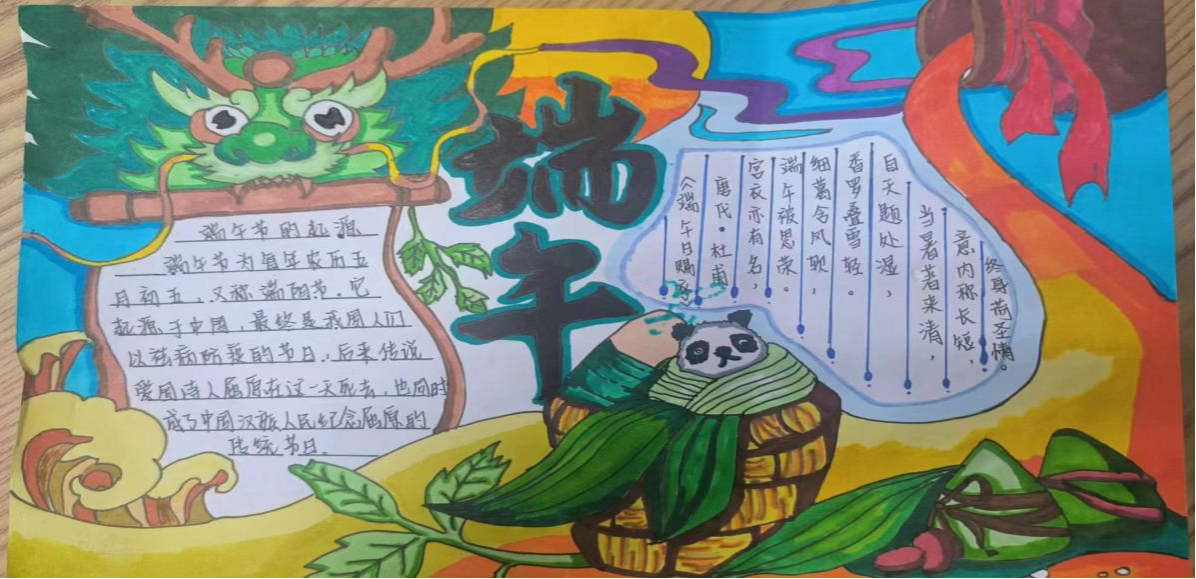 端午节的起源
端午节为每年农历五
月初五，又称端阳节。它
起源于中国，最终是我国人们
以祛病防疫的节日，后来传说
爱国诗人屈原在这一天死去，也同时
成了中国汉族人民纪念屈原的
传统节日。
端午
《端午日赐衣》
唐代·杜甫
宫衣亦有名，
端午被恩荣。
细葛含风软，
香罗叠雪轻。
自天题处湿，
当暑著来清，
意内称长短，
终身荷圣情。